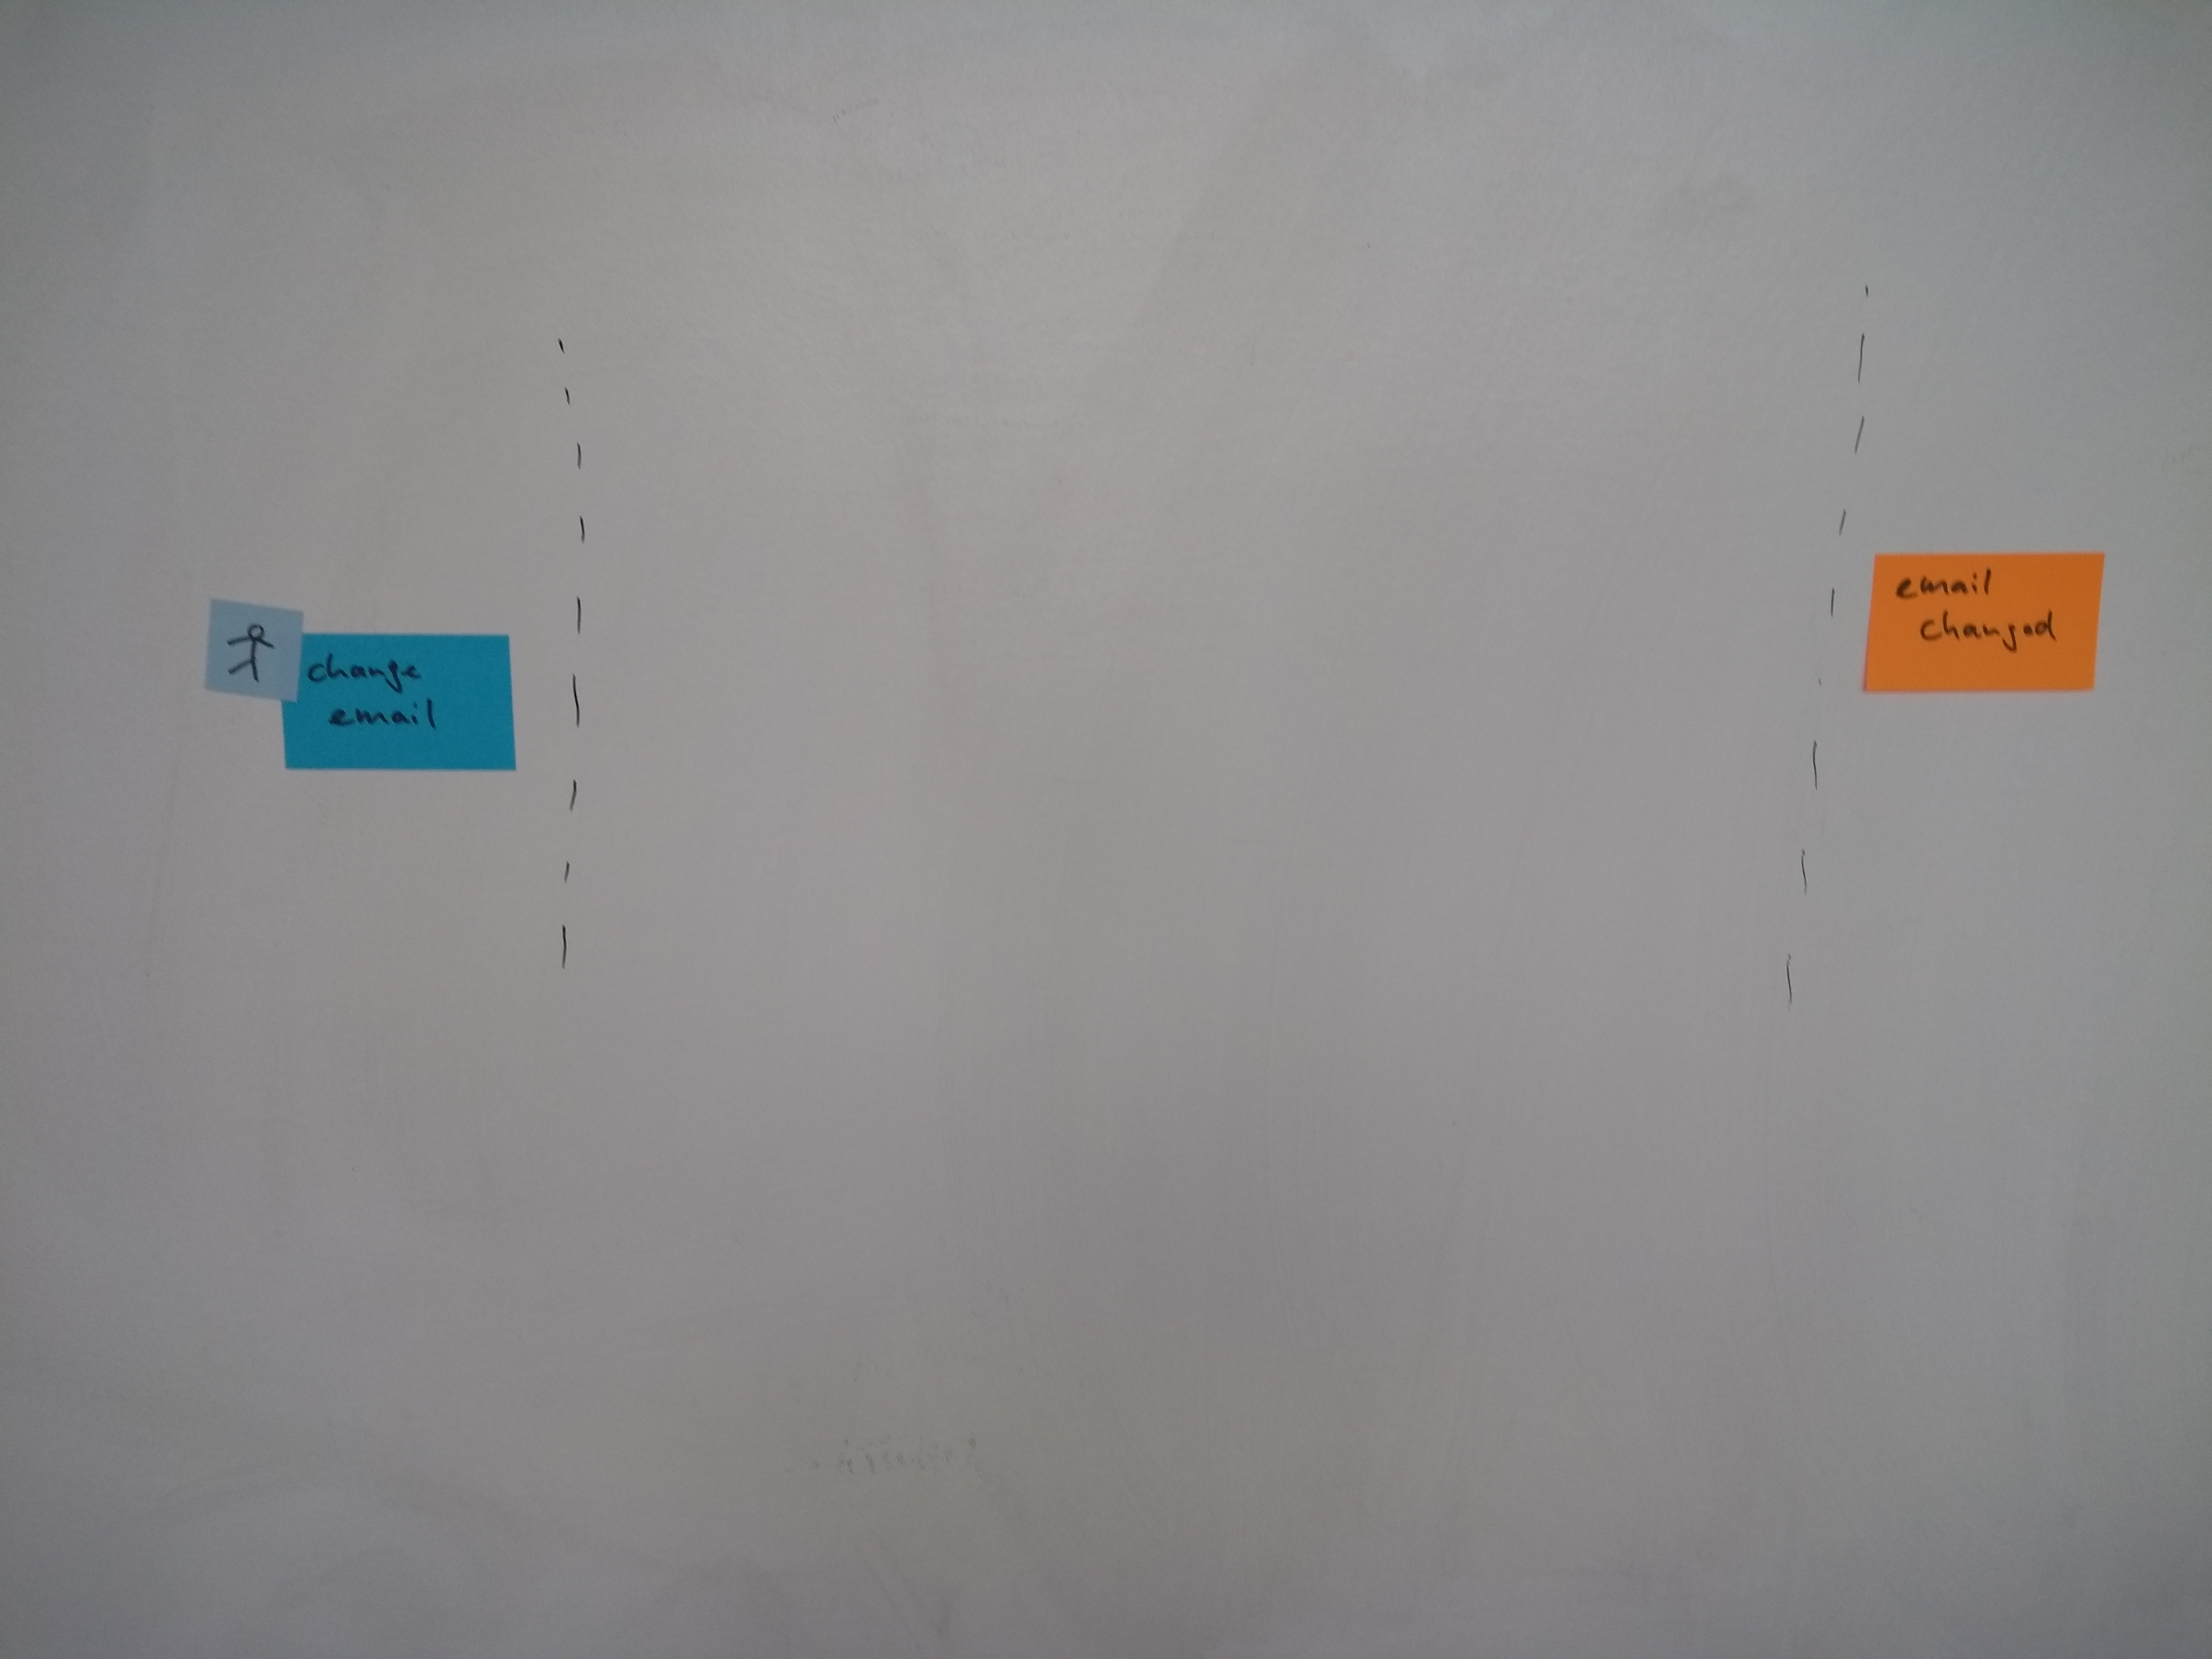 change
email
email
changed